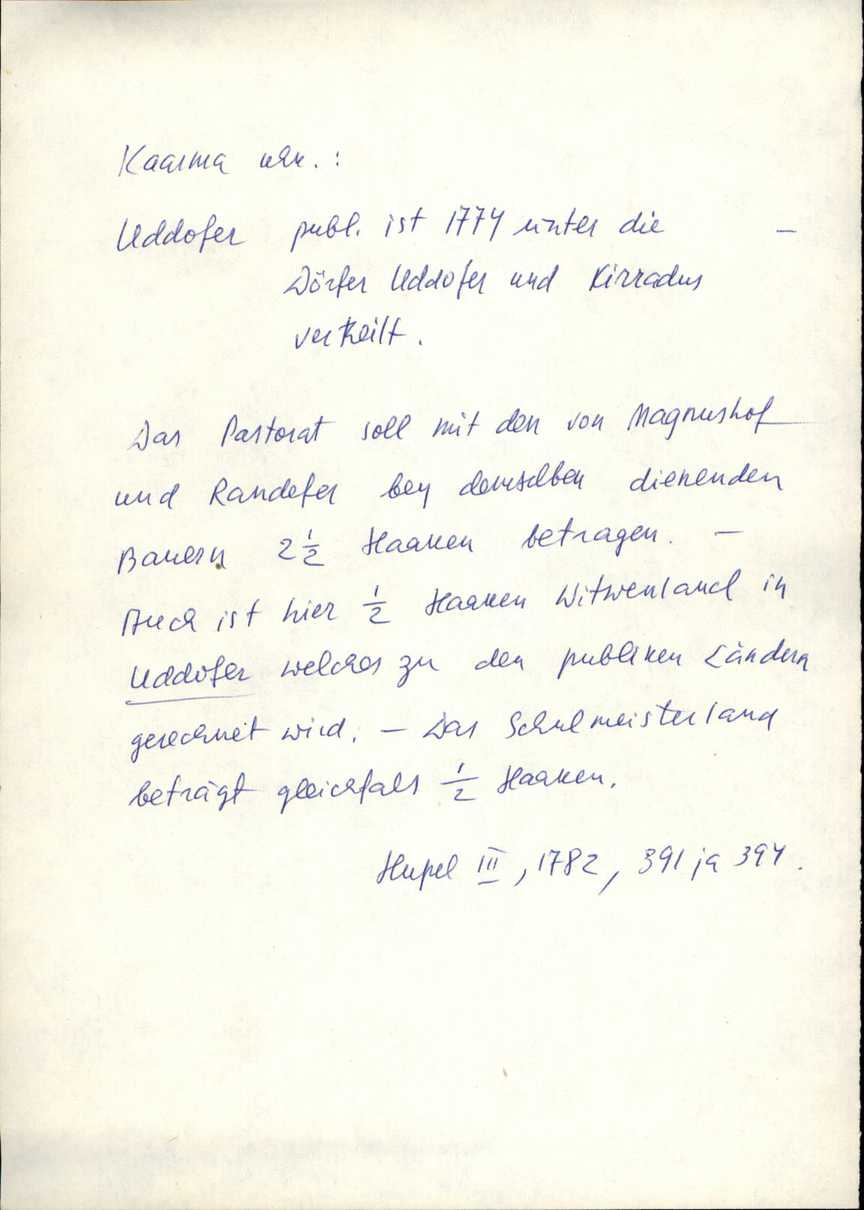 Kaarma khk. :
Uddofer publ. ist 1774 unter die —
Dörfer Uddofer und Kirradus
vertheilt.
Das Pastorat soll mit den von Magnushof
und Randefer bey demselben dienenden
Bauern 2 1/2 Haaken betragen. —
Auch ist hier 1/2 Haaken Witwenland in
Uddofer welches zu den publiken Ländern
gerechnet wird. — Das Schulmeisterland
beträgt gleichfals 1/2 Haaken.
Hupel III, 1782, 391 ja 394.